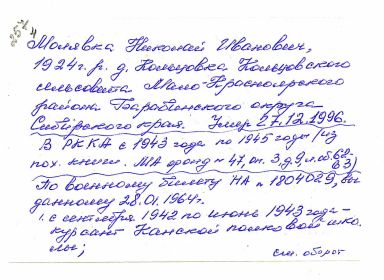 Молявка Николай Иванович,
1924г.р. д. Кольцовка Кольцовского
сельсовета Мало-Красноярского
района Барабинского округа
Сибирского края. Умер 27.12.1996.
В РККА с 1943 года по 1945 годы /из
пох. книги. МА фонд-47, оп. 3, д. 9, л.об.62-
63)
По военному билету НА № 1804029, вы
данному 28.01.1964г.
с сентября 1942 по июнь 1943 года-
курсант Канской полковой шко-
лы;
см. оборот